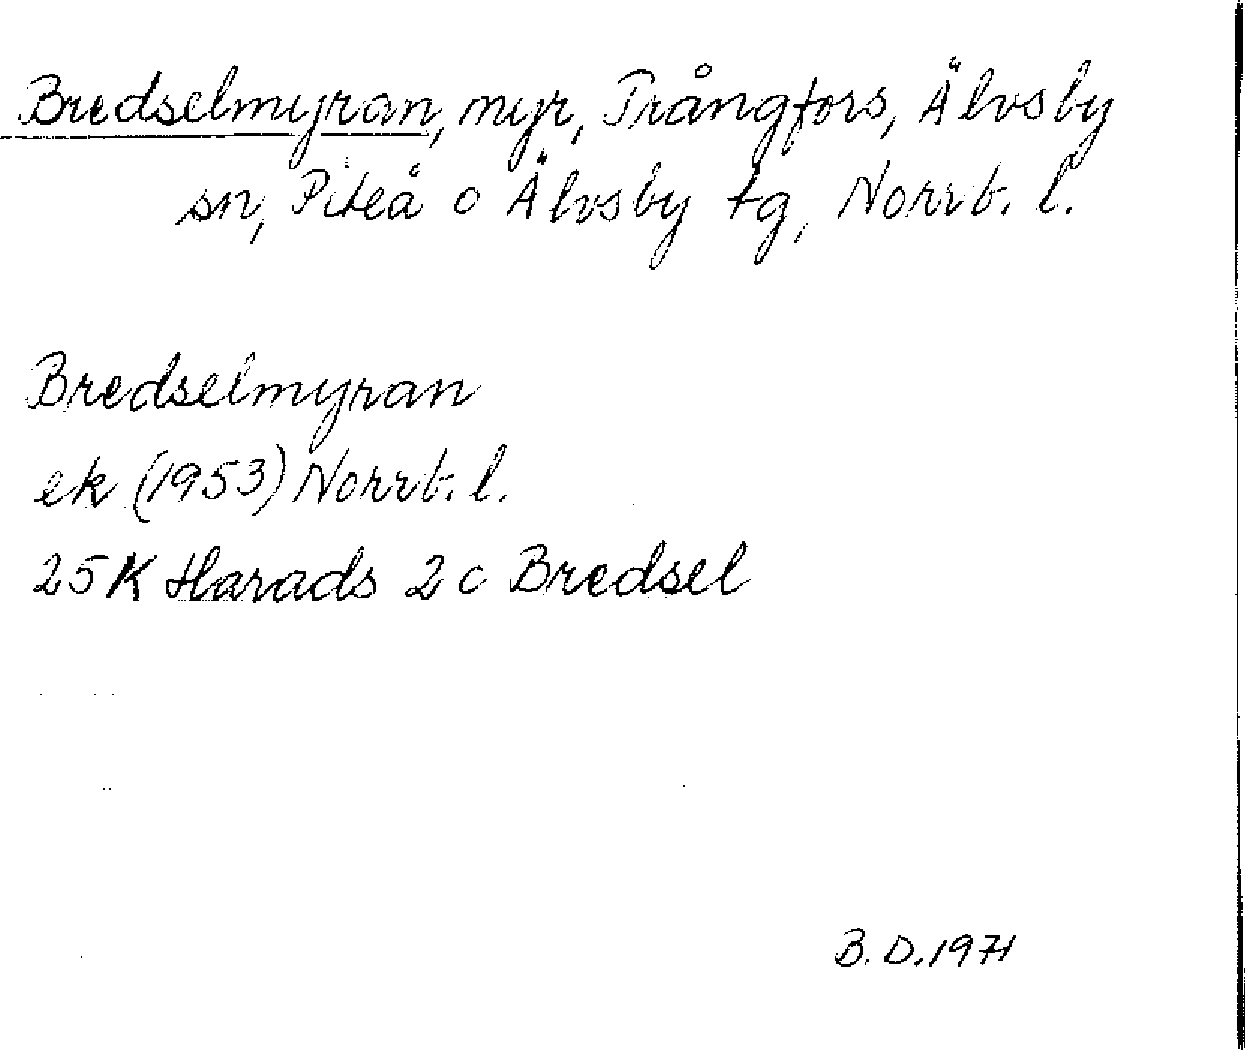 Bredselmyran, myr, Trångfors, Älvsby
sn, Piteå o Älvsby tg, Norrb. l.
Bredselmyran
ek (1953) Norrb. l.
25K Harads 2c Bredsel
B. D. 1971